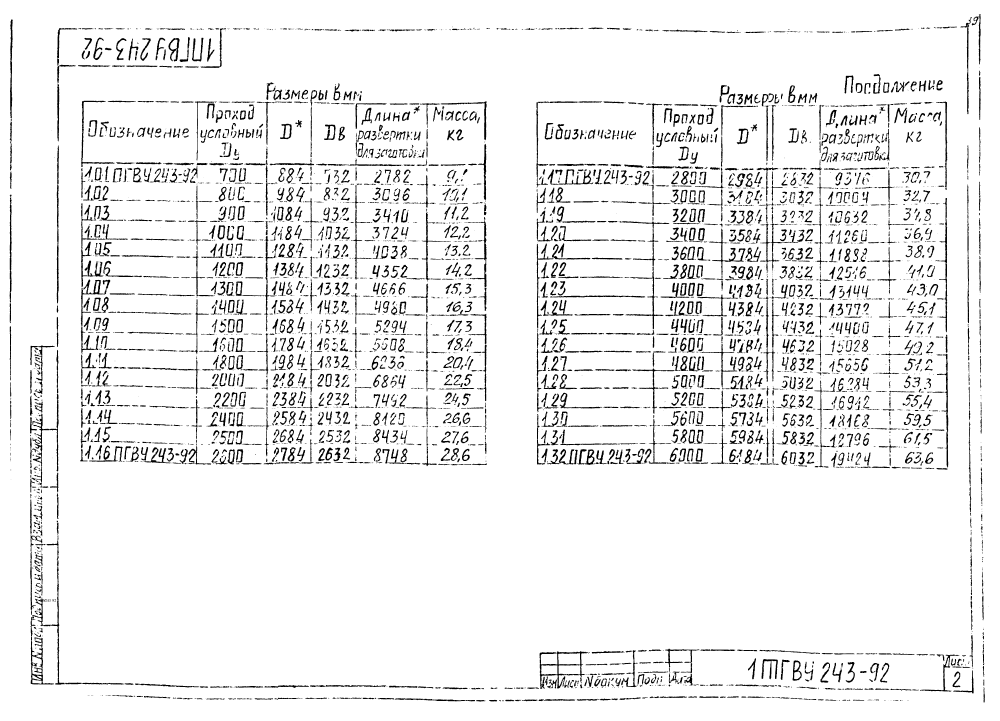 39
1ПГВУ 243-92
Размеры в мм
Обозначение | Проход условный Dу | D* | Dв | Длина* развертки для заготовки | Масса, кг
1.01 ПГВУ 243-92 | 700 | 884 | 732 | 2782 | 9,1
1.02 | 800 | 984 | 832 | 3096 | 10,1
1.03 | 900 | 1084 | 932 | 3410 | 11,2
1.04 | 1000 | 1184 | 1032 | 3724 | 12,2
1.05 | 1100 | 1284 | 1132 | 4038 | 13,2
1.06 | 1200 | 1384 | 1232 | 4352 | 14,2
1.07 | 1300 | 1484 | 1332 | 4666 | 15,3
1.08 | 1400 | 1584 | 1432 | 4980 | 16,3
1.09 | 1500 | 1684 | 1532 | 5294 | 17,3
1.10 | 1600 | 1784 | 1632 | 5608 | 18,4
1.11 | 1800 | 1984 | 1832 | 6236 | 20,4
1.12 | 2000 | 2184 | 2032 | 6864 | 22,5
1.13 | 2200 | 2384 | 2232 | 7492 | 24,5
1.14 | 2400 | 2584 | 2432 | 8120 | 26,6
1.15 | 2500 | 2684 | 2532 | 8434 | 27,6
1.16 ПГВУ 243-92 | 2600 | 2784 | 2632 | 8748 | 28,6
Размеры в мм
Продолжение
Обозначение | Проход условный Dу | D* | Dв. | Длина* развертки для заготовки | Масса, кг
1.17 ПГВУ 243-92 | 2800 | 2984 | 2832 | 9376 | 30,7
1.18 | 3000 | 3184 | 3032 | 10004 | 32,7
1.19 | 3200 | 3384 | 3232 | 10632 | 34,8
1.20 | 3400 | 3584 | 3432 | 11260 | 36,9
1.21 | 3600 | 3784 | 3632 | 11888 | 38,9
1.22 | 3800 | 3984 | 3832 | 12516 | 41,0
1.23 | 4000 | 4184 | 4032 | 13144 | 43,0
1.24 | 4200 | 4384 | 4232 | 13772 | 45,1
1.25 | 4400 | 4584 | 4432 | 14400 | 47,1
1.26 | 4600 | 4784 | 4632 | 15028 | 49,2
1.27 | 4800 | 4984 | 4832 | 15656 | 51,2
1.28 | 5000 | 5184 | 5032 | 16284 | 53,3
1.29 | 5200 | 5384 | 5232 | 16912 | 55,4
1.30 | 5600 | 5784 | 5632 | 18168 | 59,5
1.31 | 5800 | 5984 | 5832 | 18796 | 61,5
1.32 ПГВУ 243-92 | 6000 | 6184 | 6032 | 19424 | 63,6
Инв. № подл. Подпись и дата Взам. инв. №
Изм Лист № докум Подп Дата
1 ПГВУ 243-92
Лист
2